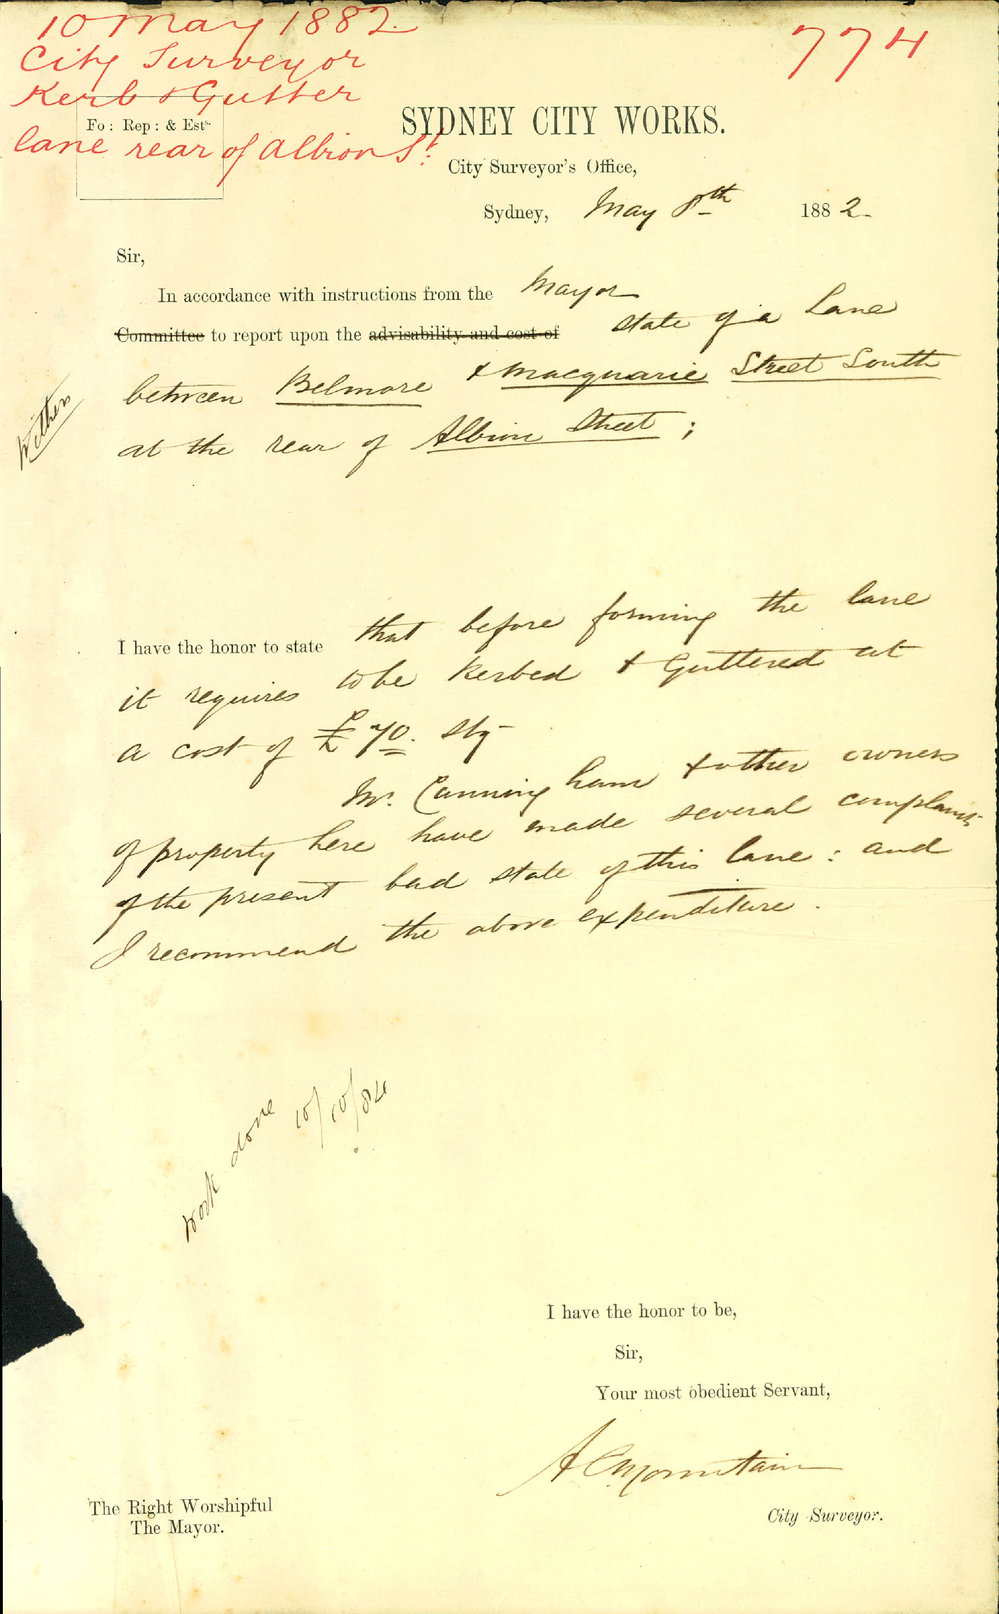 10 May 1882
774
City Surveyor
Kerb & Gutter
Fo: Rep: & Est.
lane rear of Albion St.
SYDNEY CITY WORKS.
City Surveyor's Office,
Sydney, May 8th 1882.
Sir,
In accordance with instructions from the Mayor
Committee to report upon the advisability and cost of state of a Lane
between Belmore & Macquarie Street South
at the rear of Albion Street;
Withers
I have the honor to state that before forming the lane
it requires to be Kerbed & Guttered at
a cost of £70. Stg
Mr. Cunningham & other owners
of property here have made several complaints
of the present bad state of this lane: and
I recommend the above expenditure.
Work done 10/10/84
I have the honor to be,
Sir,
Your most obedient Servant,
A C Mountain
City Surveyor.
The Right Worshipful
The Mayor.